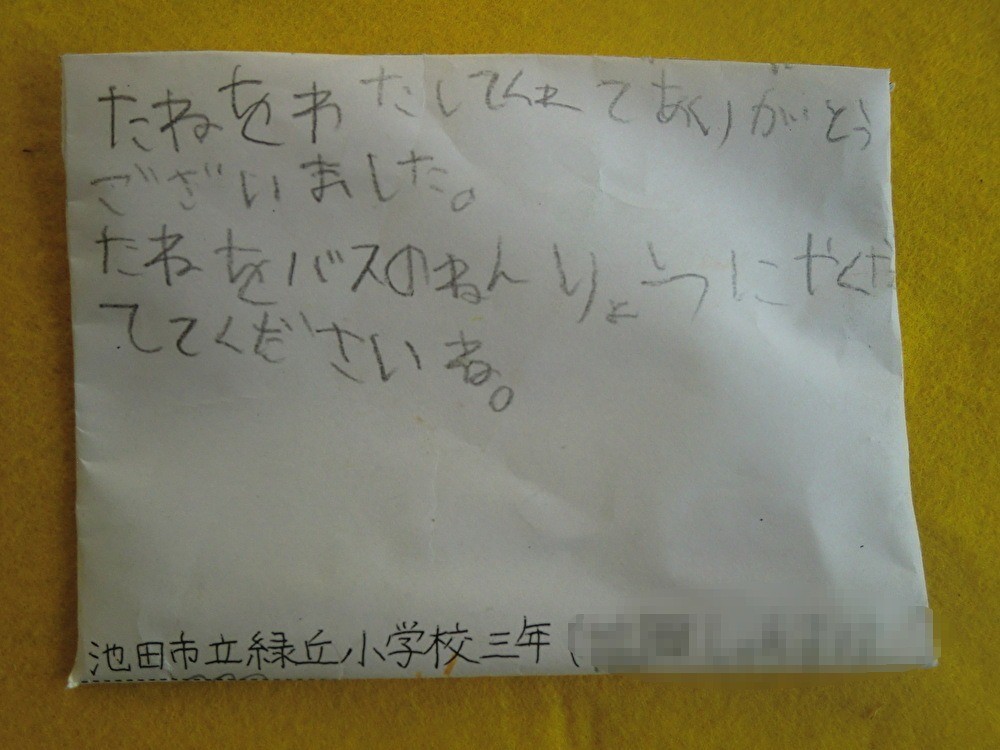 たねをわたしてくれてありがとう
ございました。
たねをバスのねんりょうにやくだ
ててくださいね。
池田市立緑丘小学校三年（